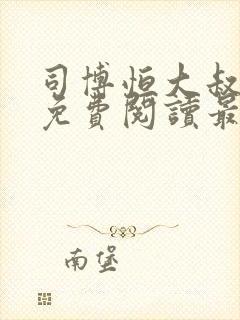 司博恒大叔
免費閱讀最
南堡